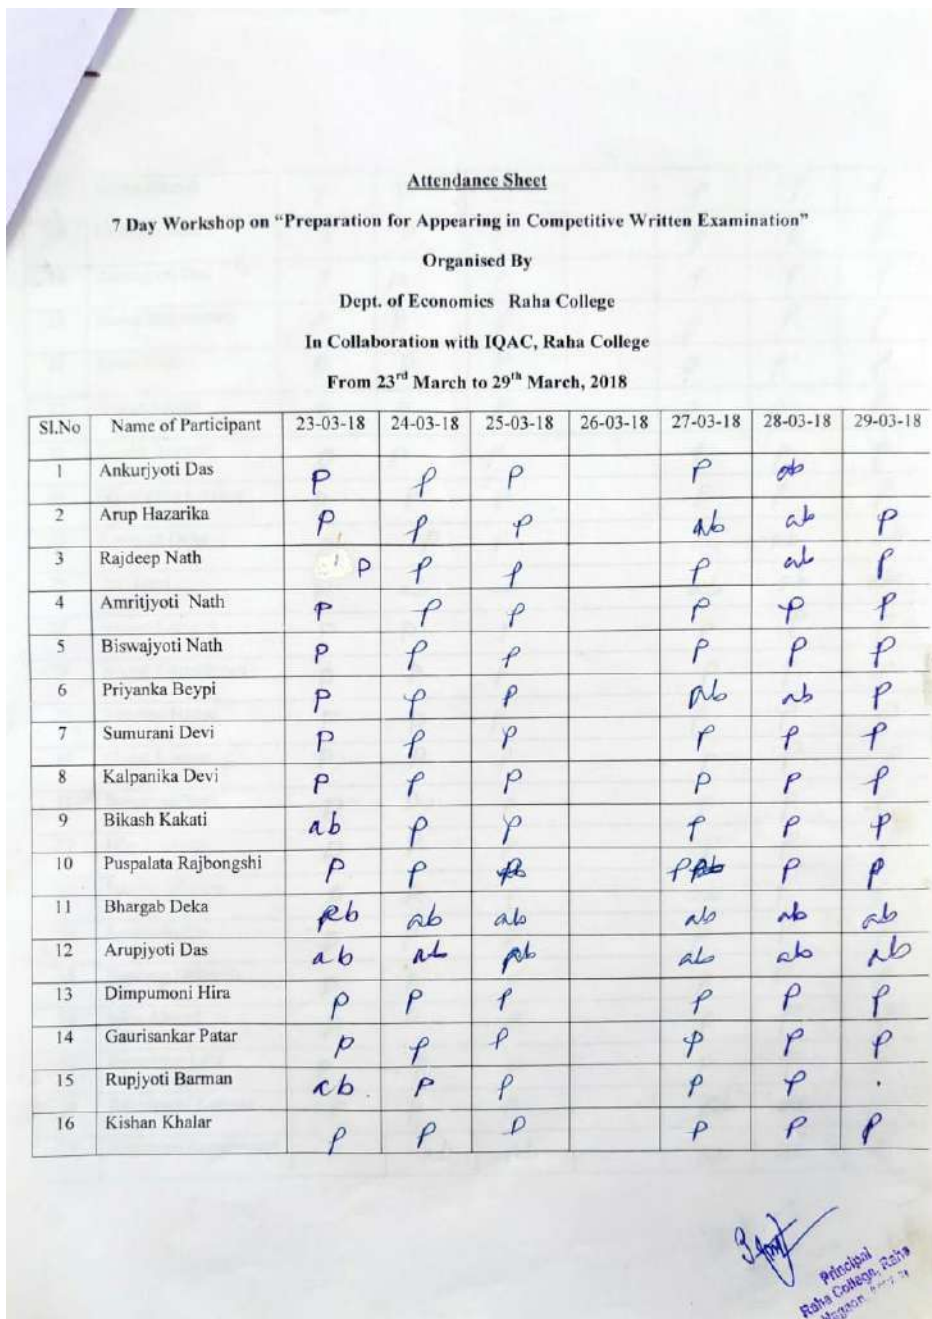 Attendance Sheet
7 Day Workshop on “Preparation for Appearing in Competitive Written Examination”
Organised By
Dept. of Economics Raha College
In Collaboration with IQAC, Raha College
From 23rd March to 29th March, 2018
Sl.No Name of Participant 23-03-18 24-03-18 25-03-18 26-03-18 27-03-18 28-03-18 29-03-18
1 Ankurjyoti Das P P P P ab
2 Arup Hazarika P P P Ab ab P
3 Rajdeep Nath P P P P ab P
4 Amritjyoti Nath P P P P P P
5 Biswajyoti Nath P P P P P P
6 Priyanka Beypi P P P Ab ab P
7 Sumurani Devi P P P P P P
8 Kalpanika Devi P P P P P P
9 Bikash Kakati ab P P P P P
10 Puspalata Rajbongshi P P P P P
11 Bhargab Deka ab ab ab ab ab
12 Arupjyoti Das ab ab ab ab ab ab
13 Dimpumoni Hira P P P P P P
14 Gaurisankar Patar P P P P P P
15 Rupjyoti Barman ab. P P P P .
16 Kishan Khalar P P P P P P
Principal
Raha College, Raha